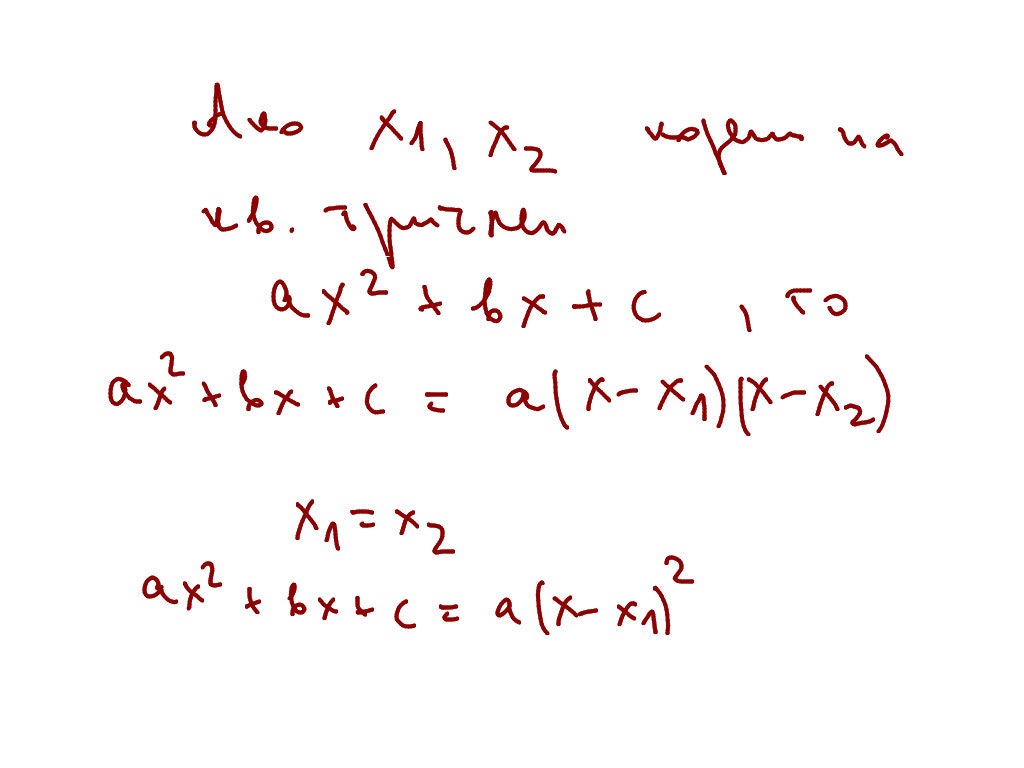 Ако x₁, x₂ корени на
кв. тричлен
ax² + bx + c , то
ax² + bx + c = a(x - x₁)(x - x₂)
x₁ = x₂
ax² + bx + c = a(x - x₁)²